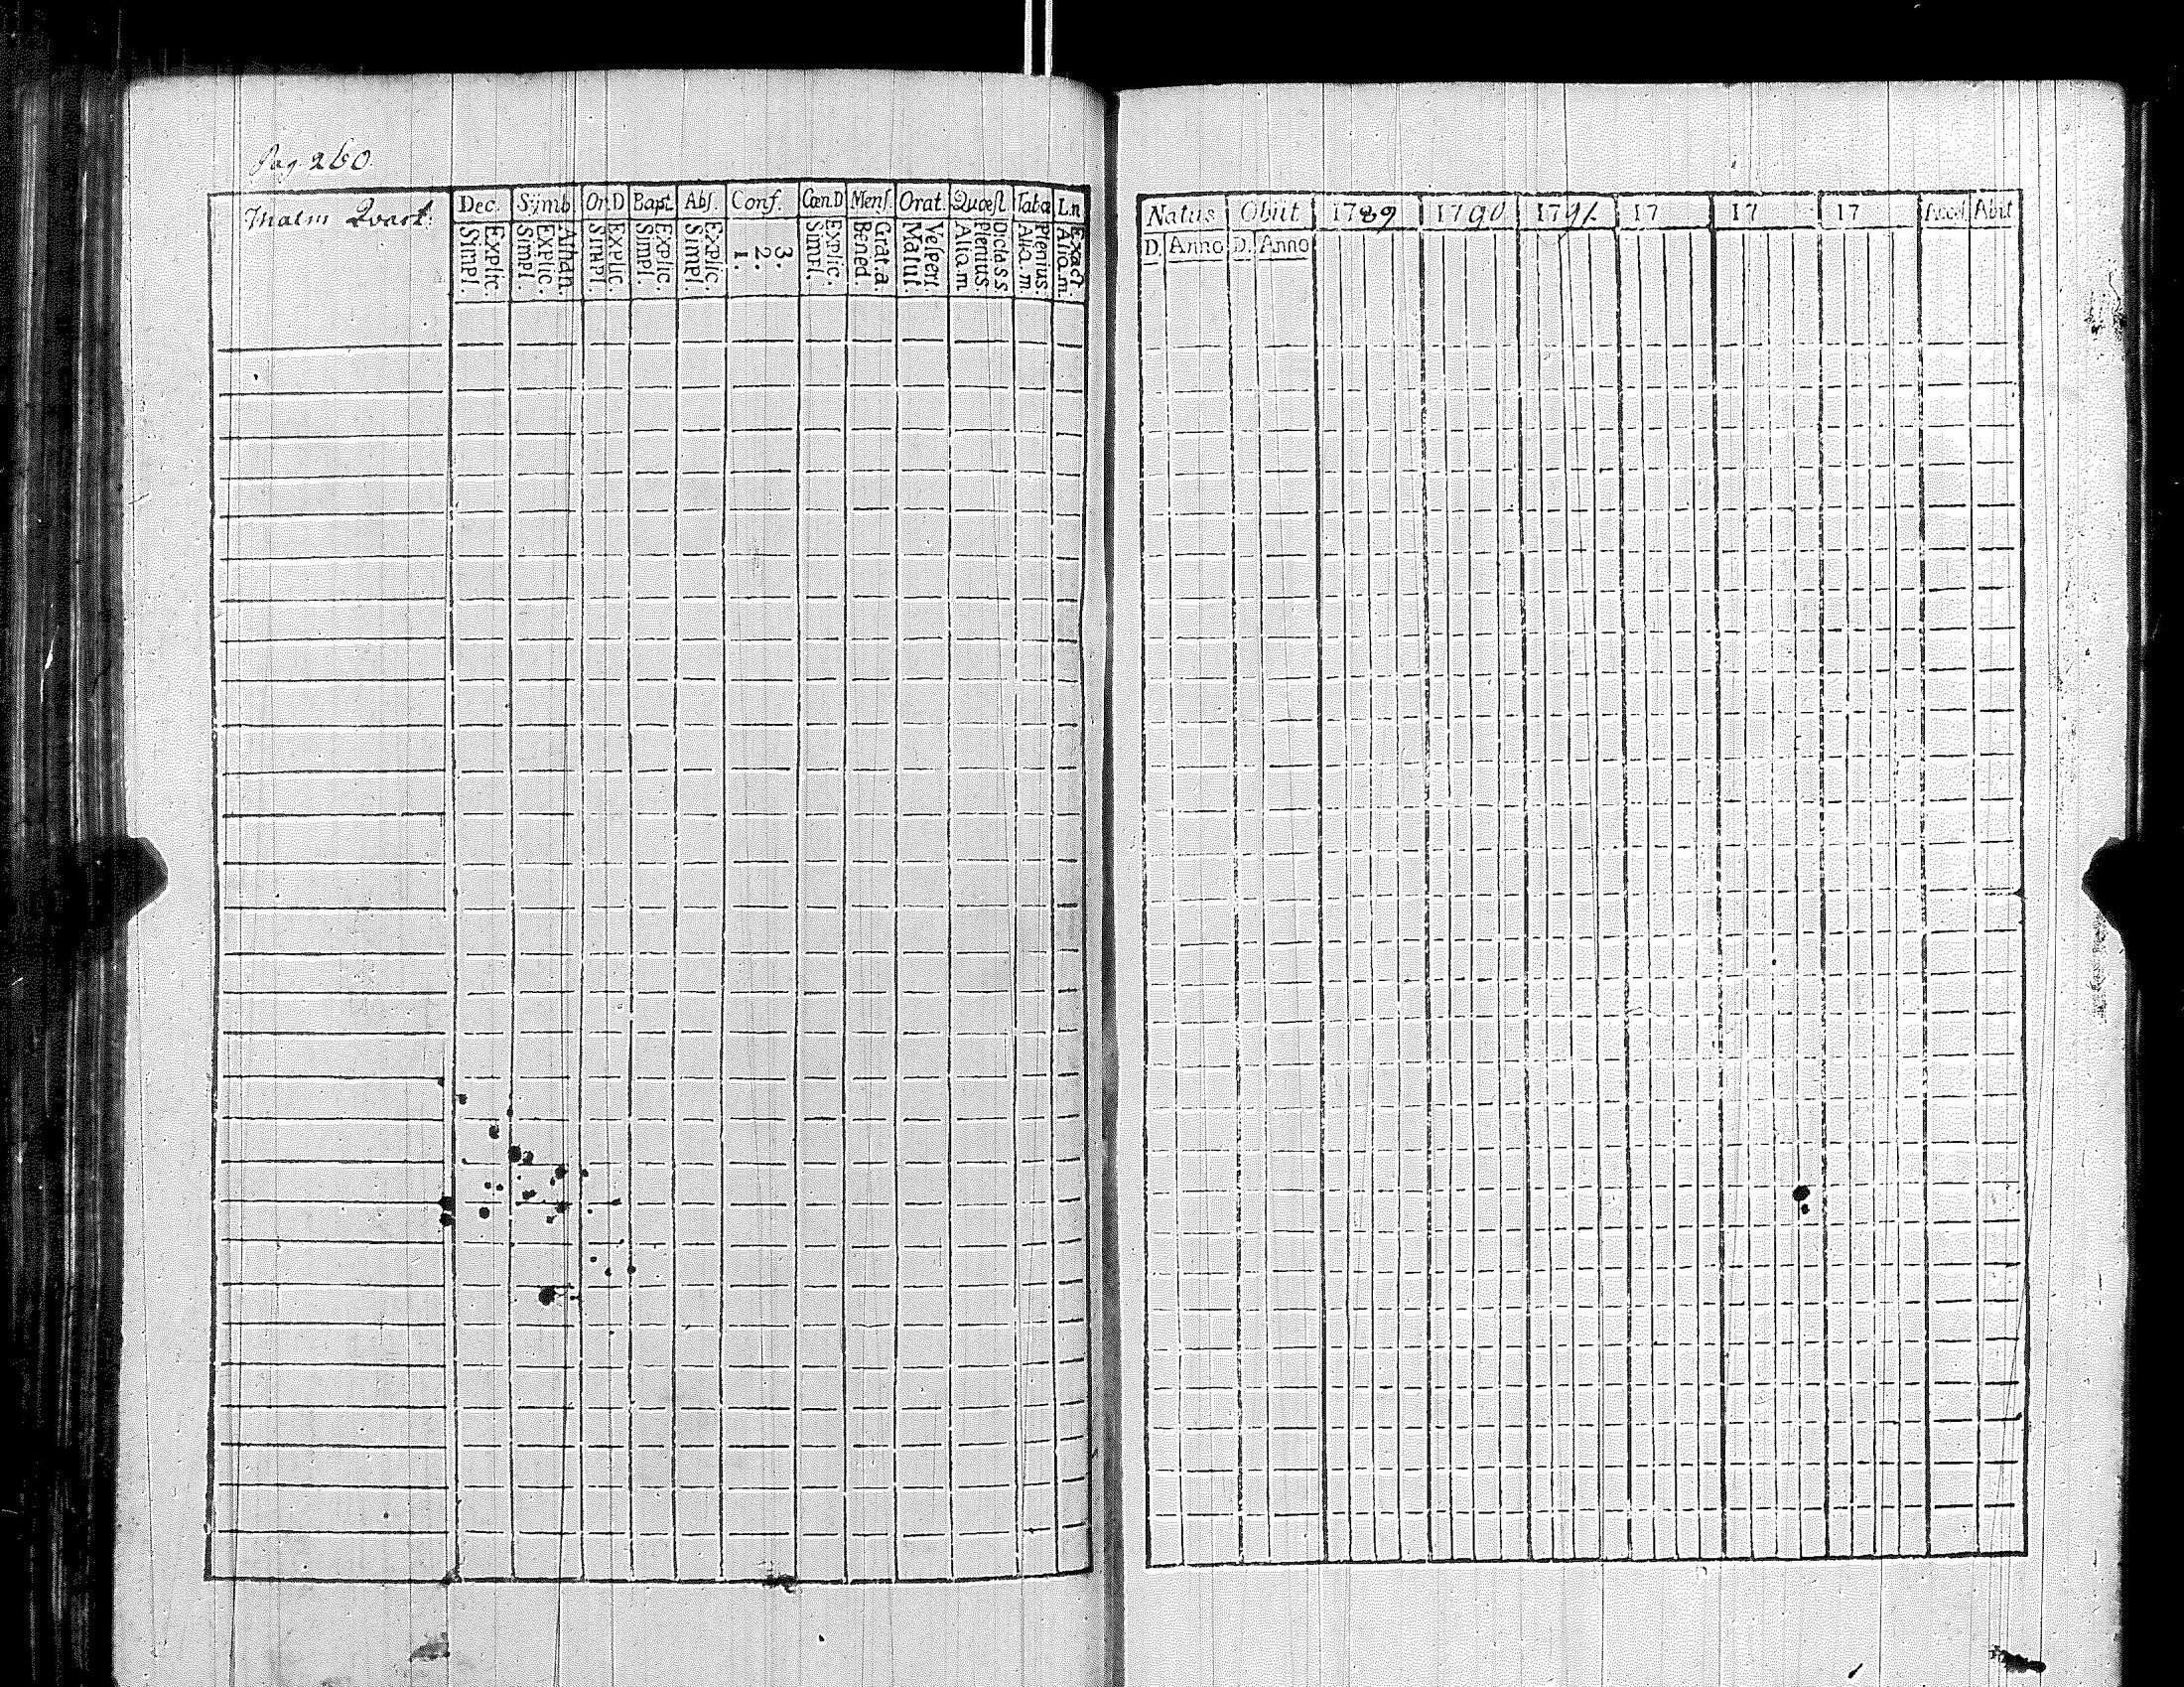 Pag. 260.
Malm Qvart:
Dec. Symb. Or.D Bapt. Abs. Conf. Cœn.D Mens. Orat. Quæst. Taba Ln
Explic. Simpl.
Athan. Explic. Simpl.
Explic. Simpl.
Explic. Simpl.
Explic. Simpl.
3. 2. 1.
Explic. Simpl.
Grat.a. Bened.
Vespert. Matut.
Dicta S S. Plenius. Aliq.m
Plenius. Aliq.m.
Exact. Aliq.m.
Natus Obiit 1789 1790 1791 17 17 17 Acces Abiit
D. Anno D. Anno